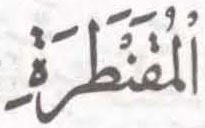 ٱلْمُقَنْطَرَةِ